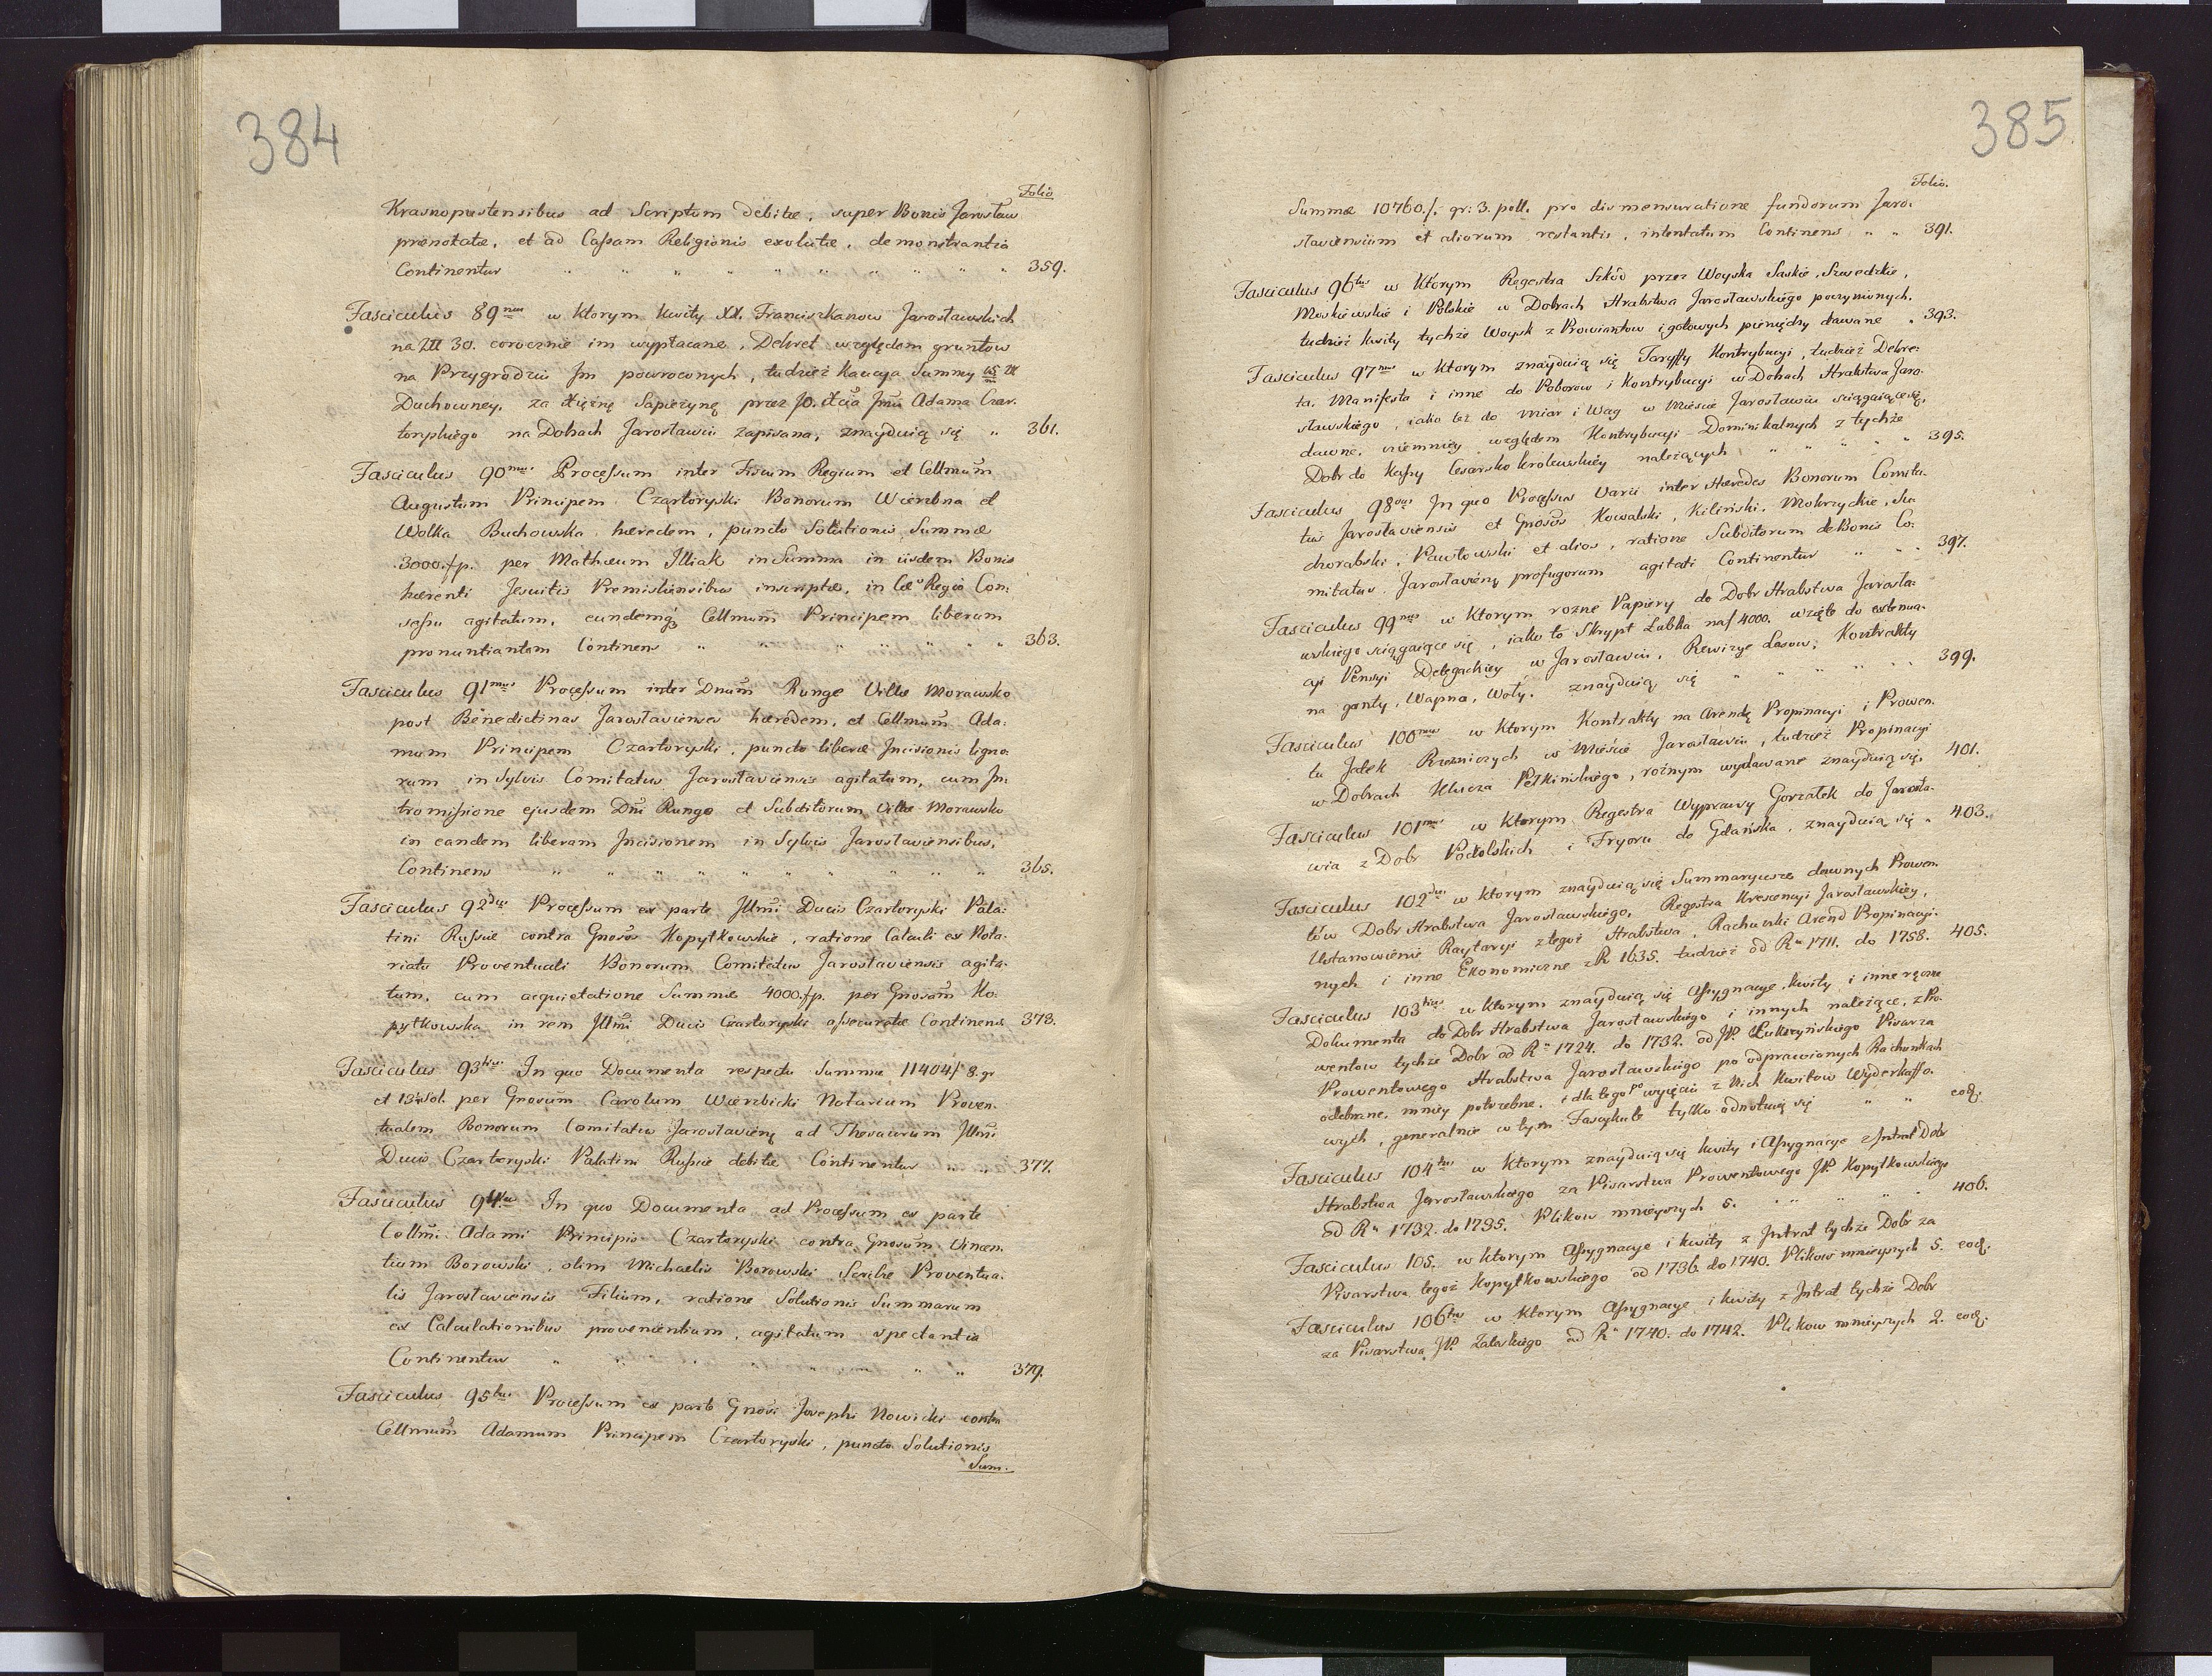 384
Folio
Krasnopustensibus ad Scriptum debitæ, super Bonis Jarosław
prænotatæ, et ad Cassam Religionis exolutæ, demonstrantia
Continentur " " " " " " " " " 359.
Fasciculus 89nus w ktorym kwity XX. Franciszkanow Jarosławskich
na 30. corocznie im wypłacane, Dekret względem gruntow
na Przygrodziu Im powroconych, tudzież Kaucya Summy
Duchowney, za Xiężnę Sapieżynę przez JO. Xcia Jmci Adama Czar-
toryskiego na Dobrach Jarosławiu zapisana, znayduią się " 361.
Fasciculus 90mus Processum inter Fiscum Regium et Cellmum
Augustum Principem Czartoryski Bonorum Wierzbna et
Wolka Buchowska hæredem, puncto Solutionis Summæ
3000.fp. per Mathæum Illiak in Summa in iisdem Bonis
hærenti Jesuitis Premisliensibus inscriptæ, in Cæo Regio Con:
sessu agitatum, eundemq3 Cellmum Principem liberum
pronuntiantem Continens " " " " " " " 363.
Fasciculus 91mus Processum inter Dnum Runge Villæ Morawsko
post Benedictinas Jaroslavienses hæredem, et Cellmum Ada:
mum Principem Czartoryski, puncto liberæ Incisionis ligno:
rum in Sylvis Comitatus Jaroslaviensis agitatum, cum In:
tromissione ejusdem Dni Runge et Subditorum Villæ Morawsko
in eandem liberam Incisionem in Sylvis Jaroslaviensibus,
Continens " " " " " " " " " 365.
Fasciculus 92dus Processum ex parte Jllmi Ducis Czartoryski Pala:
tini Russiæ contra Gnosos Kopytkowskie, ratione Calculi ex Nota-
riatu Proventuali Bonorum Comitatus Jaroslaviensis agita-
tum, cum acquietatione Summæ 4000.fp. per Gnosam Ko:
pytkowska in rem Jllmi Ducis Czartoryski assecuratæ Continens 373.
Fasciculus 93tius In quo Documenta respectu Summæ 11404f 8. gr
et 13 Sol. per Gnosum Carolum Wierzbicki Notarium Proven-
tualem Bonorum Comitatus Jaroslavien ad Thesaurum Jllmi
Ducis Czartoryski Palatini Russiæ debitæ Continentur " " 377.
Fasciculus 94tus In quo Documenta ad Processum ex parte
Cellmi Adami Principis Czartoryski contra Gnosum Vincen-
tium Borowski, olim Michaelis Borowski Scribæ Proventua-
lis Jaroslaviensis Filium, ratione Solutionis Summarum
ex Calculationibus provenientium, agitatum spectantia
Continentur " " " " " " 379.
Fasciculus 95tus Processum ex parte Gnosi Josephi Nowicki contra
Cellmum Adamum Principem Czartoryski, puncto Solutionis
Sum.
385
Folio.
Summæ 10760.f. gr: 3. poll. pro dismensuratione fundorum Jaro-
slaviensium et aliorum restantis, intentatum Continens " " 391.
Fasciculus 96tus w ktorym Regestra Szkód przez Woyska Saskie, Szwedzkie,
Moskiewskie i Polskie w Dobrach Hrabstwa Jarosławskiego poczynionych,
tudzież kwity tychże Woysk z Prowiantow i gotowych pieniędzy dawane " 393.
Fasciculus 97mus w ktorym znayduią się Taryffy Kontrybucyi, tudzież Dekre-
ta, Manifesta i inne do Poborow i Kontrybucyi w Dobrach Hrabstwa Jaro-
sławskiego, iako też do miar i Wag w Mieście Jarosławiu sciągaiące się,
dawne, niemniey względem Kontrybucyi Dominikalnych z tychże
Dobr do Kassy Cesarsko królewskiey należących " " " " 395.
Fasciculus 98vus In quo Processus Varii inter Hæredes Bonorum Comita-
tus Jaroslaviensis et Gnosos Kowalski, Kiliński, Mokrzyckie, Su-
chorabski, Pawłowski et alios, ratione Subditorum de Bonis Co-
mitatus Jaroslavien profugorum agitati Continentur " " " 397.
Fasciculus 99nus w ktorym rozne Papiery do Dobr Hrabstwa Jarosła-
wskiego sciągaiące się, iako to Skrypt Łubka na f 4000. wzięte do extenua-
cyi Pensyi Delegackiey w Jarosławiu, Rewizye Lasow, Kontrakty
na gonty, Wapna, Woły, znayduią się " " " " " 399.
Fasciculus 100mus w ktorym Kontrakty na Arendę Propinacyi i Prowen-
tu Jatek Rzezniczych w Mieście Jarosławiu, tudzież Propinacyi
w Dobrach Klucza Pełkińskiego, rożnym wydawane znayduią się, 401.
Fasciculus 101mus w ktorym Regestra Wyprawy Gorzałek do Jarosła-
wia z Dobr Podolskich i Fryoru do Gdańska, znayduią się " 403.
Fasciculus 102dus w ktorym znayduią się Summaryusze dawnych Prowen-
tów Dobr Hrabstwa Jarosławskiego, Regestra Krescencyi Jarosławskiey,
Ustanowienie Raytaryi z tegoż Hrabstwa, Rachunki Arend Propinacyi-
nych i inne Ekonomiczne z R 1635. tudzież od Ru 1711. do 1758. 405.
Fasciculus 103tius w ktorym znayduią się Assygnacye, kwity, i inne ręczne
Dokumenta do Dobr Hrabstwa Jarosławskiego i innych należące, z Pro-
wentow tychże Dobr od Ru 1724. do 1732. od JP. Łukszyńskiego Pisarza
Prowentowego Hrabstwa Jarosławskiego po odprawionych Rachunkach
odebrane, mniey potrzebne, i dla tego po wyięciu z Nich Kwitow Wyderkaffo-
wych, generalnie w tym Fascykule tylko odnotuią się " " eod.
Fasciculus 104tus w ktorym znayduią się kwity i Assygnacye z Intrat Dobr
Hrabstwa Jarosławskiego za Pisarstwa Prowentowego JP. Kopytkowskiego
od Ru 1732. do 1735. Plikow mnieyszych 6. " " " " " 406.
Fasciculus 105. w ktorym Assygnacye i kwity z Intrat tychże Dobr za
Pisarstwa tegoż Kopytkowskiego od 1736. do 1740. Plikow mnieyszych 5. eod.
Fasciculus 106tus w ktorym Assygnacye i kwity z Intrat tychże Dobr
za Pisarstwa JP. Zaleskiego od Ru 1740. do 1742. Plikow mnieyszych 2. eod.